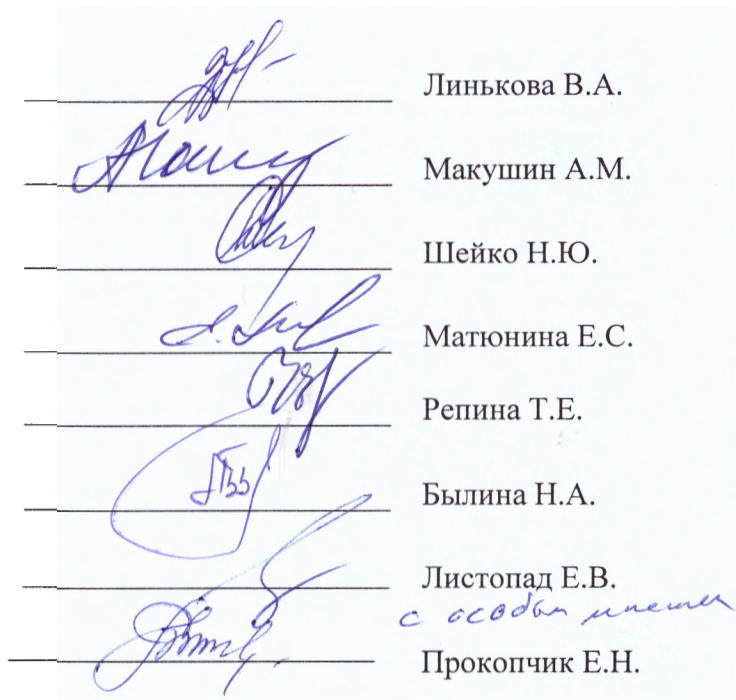 Линькова В.А.
Макушин А.М.
Шейко Н.Ю.
Матюнина Е.С.
Репина Т.Е.
Былина Н.А.
Листопад Е.В.
с особым мнением
Прокопчик Е.Н.